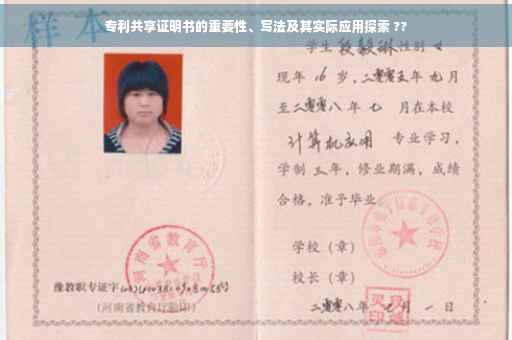 专利共享证明书的重要性、写法及其实际应用探索 ??
样本
学生段毅琳性别女
现年16岁，二零零五年九月
至二零零八年七月在本校
计算机应用 专业学习，
学制三年，修业期满，成绩
合格，准予毕业。
学校（章）
校长（章）
二零零八年七月一日
河南省教育厅
豫教职专证字
（河南省教育厅验印）